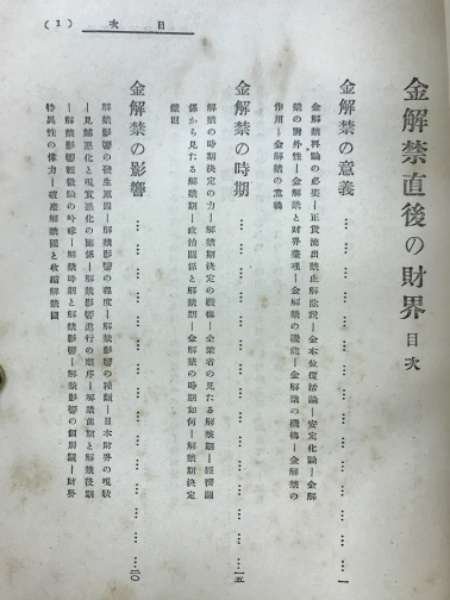 目次 (1)
金解禁直後の財界 目次
金解禁の意義 … … … … … … … … … … … … … … … 一
金解禁再論の必要―正貨流出禁止解除說―金本位復活論―安定化論―金解
禁の對外性―金解禁と財界整理―金解禁の職能―金解禁の機構―金解禁の
作用―金解禁の意義
金解禁の時期 … … … … … … … … … … … … … … … 一五
解禁の時期決定の力―解禁期決定の機構―企業者の見たる解禁期―經濟關
係から見たる解禁期―政治關係と解禁期―金解禁の時期如何―解禁期決定
金解禁の影響 … … … … … … … … … … … … … … … 二〇
解禁影響の發生原因―解禁影響の程度―解禁影響の種類―日本財界の現狀
―見越惡化と現實惡化の關係―解禁影響進行の順序―解禁前期と解禁後期
―解禁影響輕微論の吟味―解禁時期と解禁影響―解禁影響の個別觀―財界
特異性の偉力―破產解禁國と收縮解禁國